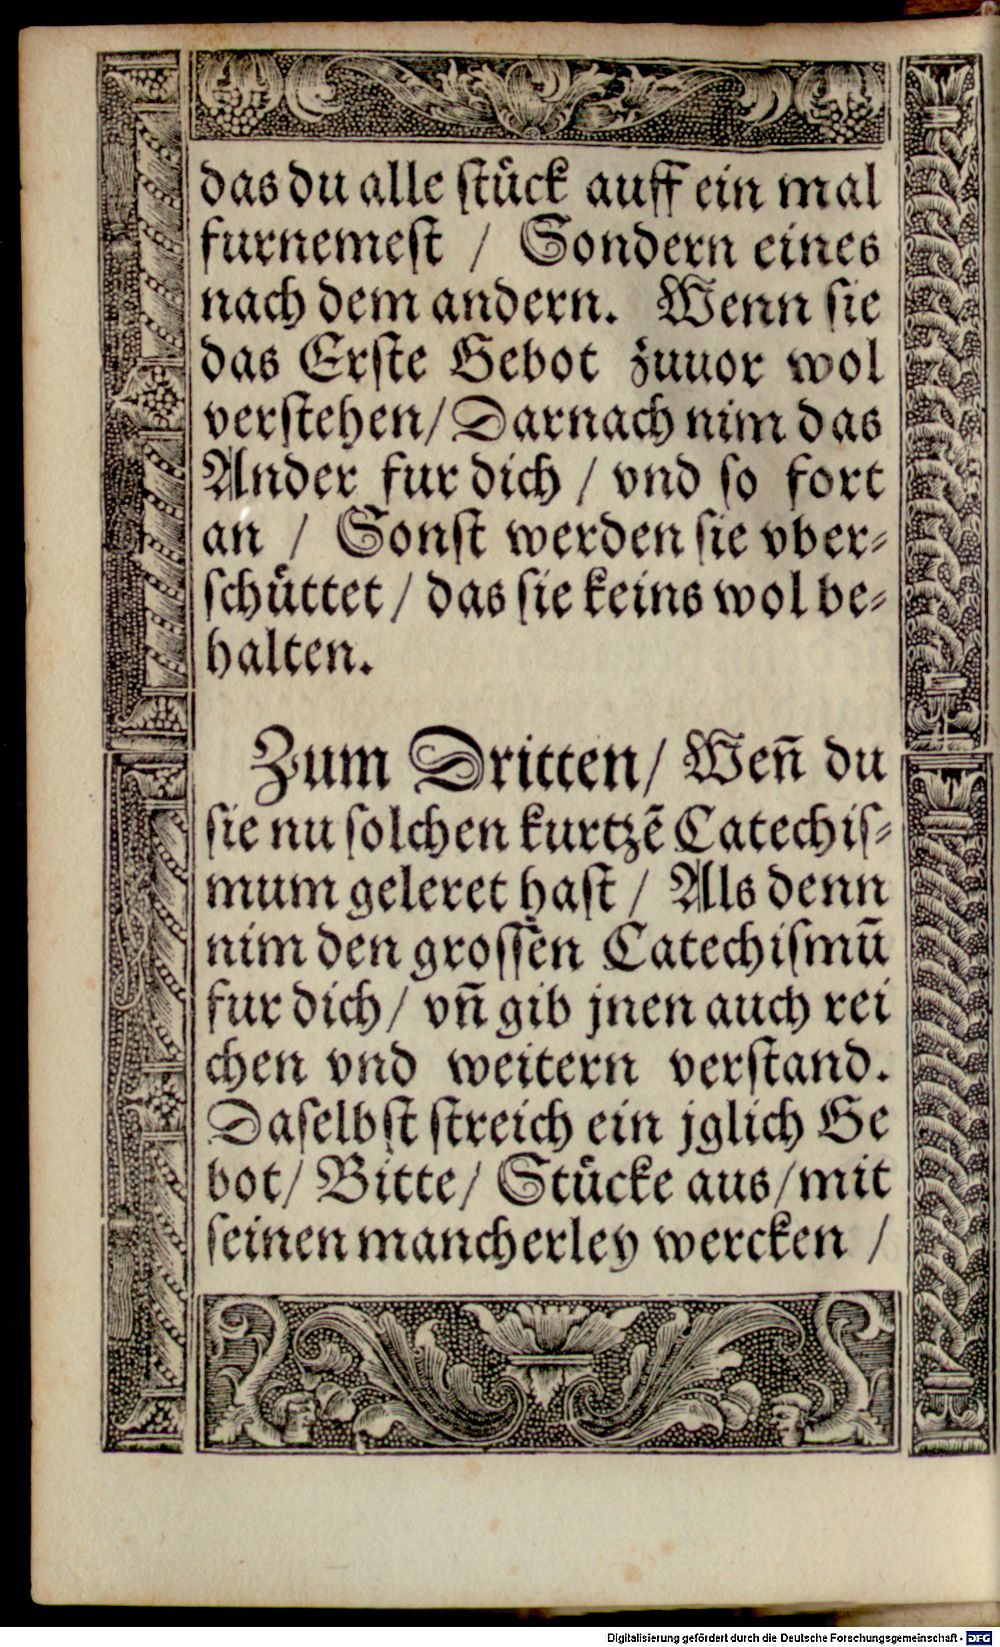 das du alle ſtuͤck auff ein mal
furnemeſt / Sondern eines
nach dem andern. Wenn ſie
das Erſte Gebot zuuor wol
verſtehen/ Darnach nim das
Ander fur dich / vnd ſo fort
an / Sonſt werden ſie vber⸗
ſchuͤttet / das ſie keins wol be⸗
halten.
Zum Dritten/ Wen̄ du
ſie nu ſolchen kurtzē Catechiſ⸗
mum geleret haſt / Als denn
nim den groſſen Catechiſmū
fur dich/ vn̄ gib jnen auch rei
chen vnd weitern verſtand.
Daſelbſt ſtreich ein jglich Ge
bot/ Bitte/ Stuͤcke aus/ mit
ſeinen mancherley wercken /
Digitalisierung gefördert durch die Deutsche Forschungsgemeinschaft - DFG